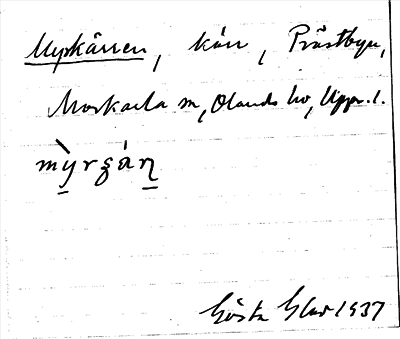 Myrkärren, kärr, Prästbyn,
Morkarla sn, Olands hd, Upps. l.
mỳrʂáɳ
Gösta 1937